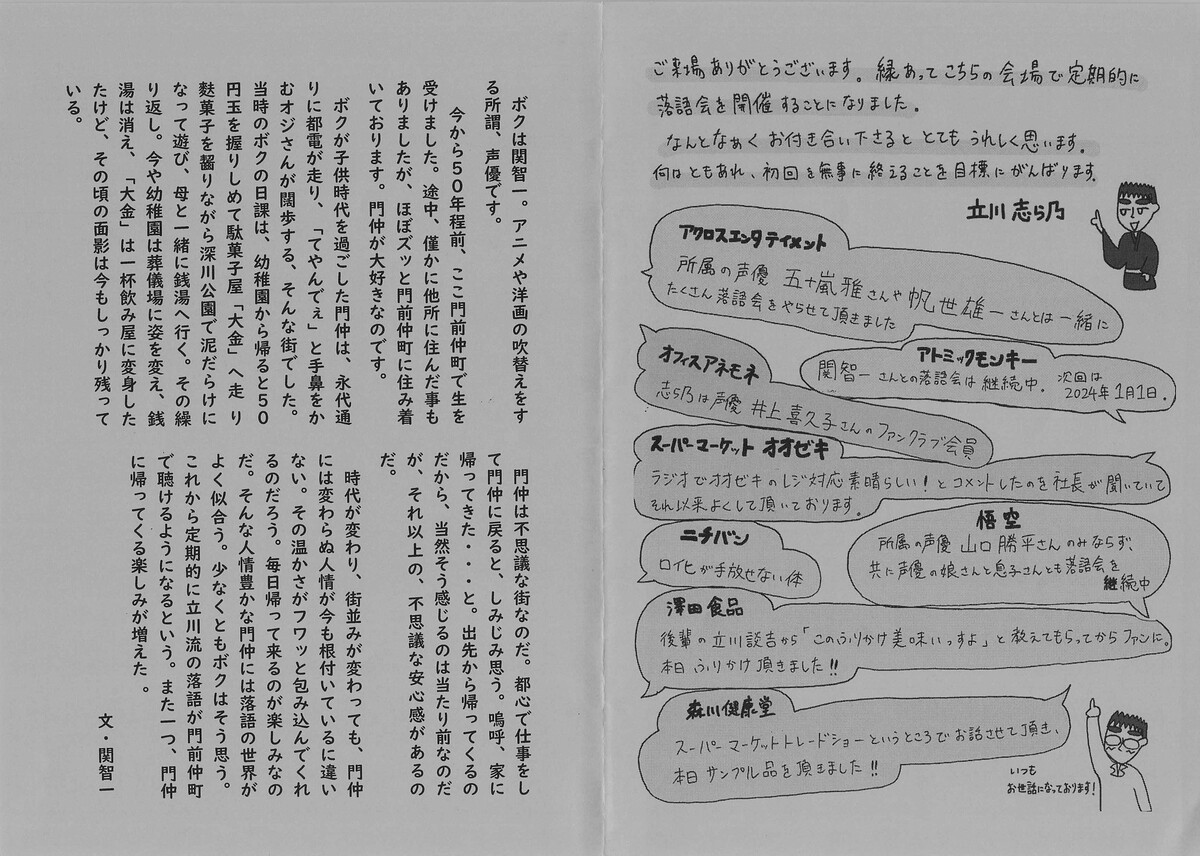 ボクは関智一。アニメや洋画の吹替えをす
る所謂、声優です。
今から50年程前、ここ門前仲町で生を
受けました。途中、僅かに他所に住んだ事も
ありましたが、ほぼズッと門前仲町に住み着
いております。門仲が大好きなのです。
ボクが子供時代を過ごした門仲は、永代通
りに都電が走り、「てやんでぇ」と手鼻をか
むオジさんが闊歩する、そんな街でした。
当時のボクの日課は、幼稚園から帰ると50
円玉を握りしめて駄菓子屋「大金」へ走り
麩菓子を齧りながら深川公園で泥だらけに
なって遊び、母と一緒に銭湯へ行く。その繰
り返し。今や幼稚園は葬儀場に姿を変え、銭
湯は消え、「大金」は一杯飲み屋に変身した
たけど、その頃の面影は今もしっかり残って
いる。
門仲は不思議な街なのだ。都心で仕事をし
て門仲に戻ると、しみじみ思う。嗚呼、家に
帰ってきた・・・と。出先から帰ってくるの
だから、当然そう感じるのは当たり前なのだ
が、それ以上の、不思議な安心感があるの
だ。
時代が変わり、街並みが変わっても、門仲
には変わらぬ人情が今も根付いているに違い
ない。その温かさがフワッと包み込んでくれ
るのだろう。毎日帰って来るのが楽しみなの
だ。そんな人情豊かな門仲には落語の世界が
よく似合う。少なくともボクはそう思う。
これから定期的に立川流の落語が門前仲町
で聴けるようになるという。また一つ、門仲
に帰ってくる楽しみが増えた。
文・関智一
ご来場ありがとうございます。縁あってこちらの会場で定期的に
落語会を開催することになりました。
なんとなぁくお付き合い下さるととてもうれしく思います。
何はともあれ、初回を無事に終えることを目標にがんばります。
立川志ら乃
アクロスエンタテイメント
所属の声優 五十嵐雅さんや帆世雄一さんとは一緒に
たくさん落語会をやらせて頂きました
アトミックモンキー
関智一さんとの落語会は継続中。次回は
2024年1月1日。
オフィスアネモネ
志ら乃は声優 井上喜久子さんのファンクラブ会員
スーパーマーケット オオゼキ
ラジオでオオゼキのレジ対応素晴らしい!とコメントしたのを社長が聞いていて
それ以来よくして頂いております。
悟空
所属の声優 山口勝平さんのみならず、
共に声優の娘さんと息子さんとも落語会を
継続中
ニチバン
ロイヒが手放せない体
澤田食品
後輩の立川談吉から「このふりかけ美味いっすよ」と教えてもらってからファンに。
本日ふりかけ頂きました!!
森川健康堂
スーパーマーケットトレードショーというところでお話させて頂き、
本日サンプル品を頂きました!!
いつも
お世話になっております!